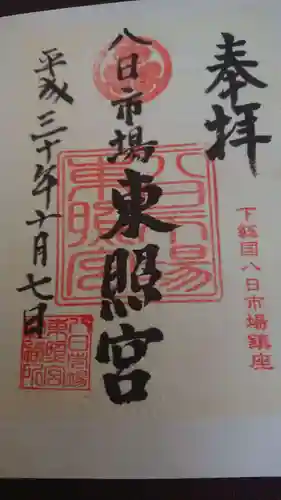 奉拝
下総国八日市場鎮座
八日市場東照宮
八日市場東照宮
平成三十年十月七日
八日市場東照宮社務所